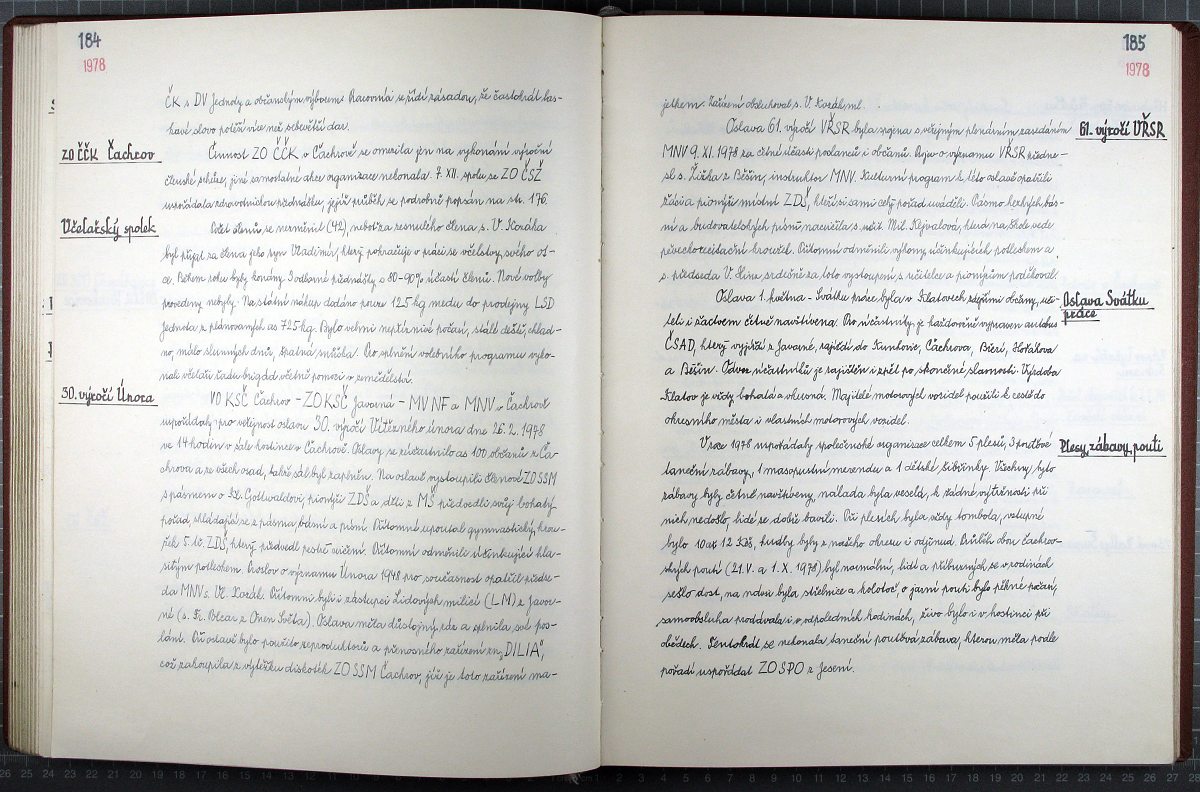 184
1978
ČK s DV Jednoty a občanským výborem. Pracovnia se řídí zásadou, že častokrát las-
kavé slovo potěší více než sebevětší dar.
ZO ČČK Čachrov
Činnost ZO ČČK v Čachrově se omezila jen na vykonání výroční
členské schůze, jiné samostatné akce organizace nekonala. 7. XII. spolu se ZO ČSŽ
uspořádala zdravotnickou přednášku, jejíž průběh je podrobně popsán na str. 176.
Včelařský spolek
Počet členů se nezměnil (42), neboť za zesnulého člena s. V. Korába
byl přijat za člena jeho syn Vladimír, který pokračuje v práci se včelstvy svého ot-
ce. Během roku byly konány 3 odborné přednášky s 80-90% účastí členů. Nové volby
provedeny nebyly. Na státní nákup dodáno pouze 125 kg medu do prodejny LSD
Jednota z plánovaných as 725 kg. Bylo velmi nepříznivé počasí, stálé deště, chlad-
no, málo slunných dnů, špatná snůška. Pro splnění volebního programu vyko-
nali včelaři řadu brigád včetně pomoci v zemědělství.
30. výročí Února
VO KSČ Čachrov - ZO KSČ Javorná - MV NF a MNV v Čachrově
uspořádaly pro veřejnost oslavu 30. výročí Vítězného února dne 26. 2. 1978
ve 14 hodin v sále hostince v Čachrově. Oslavy se zúčastnilo as 100 občanů z Ča-
chrova a ze všech osad, takže sál byl zaplněn. Na oslavě vystoupili členové ZO SSM
s pásmem o Kl. Gottwaldovi, pionýři ZDŠ a děti z MŠ předvedli svůj bohatý
pořad skládající se z pásma básní a písní. Přítomné upoutal gymnastický krou-
žek 5. tř. ZDŠ, který předvedl pestré cvičení. Přítomní odměnili účinkující hla-
sitým potleskem. Proslov o významu Února 1948 pro současnost opatřil předse-
da MNV s. Vl. Koráb. Přítomni byli i zástupci Lidových milicí (LM) z Javor-
né (s. Fr. Blcar z Onen Světa). Oslava měla důstojný ráz a splnila své pos-
lání. Při oslavě bylo použito reproduktorů a přenosného zařízení zn. „DILIA",
což zakoupila z výtěžku diskoték ZO SSM Čachrov, jíž je toto zařízení ma-
185
1978
jetkem. Zařízení obsluhoval s. V. Koráb ml.
61. výročí VŘSR
Oslava 61. výročí VŘSR byla spjena s veřejným plenárním zasedáním
MNV 9. XI. 1978 za četné účasti poslanců i občanů. Projev o významu VŘSR předne-
sl s. Žižka z Běšin, instruktor MNV. Kulturní program k této oslavě opatřili
žáci a pionýři místní ZDŠ, kteří si sami celý pořad uváděli. Pásmo hezkých bás-
ní a budovatelských písní nacvičila s. učit. Mil. Kejvalová, která na škole vede
pěveckorecitační kroužek. Přítomní odměnili výkony účinkujících potleskem a
s. předseda V. Hine srdečně za toto vystoupení s. učitelce a pionýrům poděkoval.
Oslava Svátku
práce
Oslava 1. května - Svátku práce, byla v Klatovech zdejšími občany, uči-
teli i žactvem četně navštívena. Pro účastníky je každoročně vypraven autobus
ČSAD, který vyjíždí z Javorné, zajíždí do Kunkovic, Čachrova, Březí, Chvalšova
a Běšin. Odvoz účastníků je zajištěn i zpět po skončené slavnosti. Výzdoba
Klatov je vždy bohatá a vkusná. Majitelé motorových vozidel použili k cestě do
okresního města i vlastních motorových vozidel.
Plesy, zábavy, pouti
V roce 1978 uspořádaly společenské organizace celkem 5 plesů, 3 pouťové
taneční zábavy, 1 masopustní merendu a 1 dětské šibřinky. Všechny tyto
zábavy byly četně navštíveny, nálada byla veselá, k žádné výtržnosti při
nich nedošlo, lidé se dobře bavili. Při plesích byla vždy tombola, vstupné
bylo 10 až 12 Kčs, hudby byly z našeho okresu i odjinud. Průběh obou čachrov-
ských poutí (21. V. a 1. X. 1978) byl normální, lidí a příbuzných se v rodinách
sešlo dost, na návsi byla střelnice a kolotoč, o jarní pouti bylo pěkné počasí,
samoobsluha prodávala i v odpoledních hodinách, živo bylo i v hostinci při
obědech. Tentokrát se nekonala taneční pouťová zábava, kterou měla podle
pořadí uspořádat ZO SPO z Jesení.